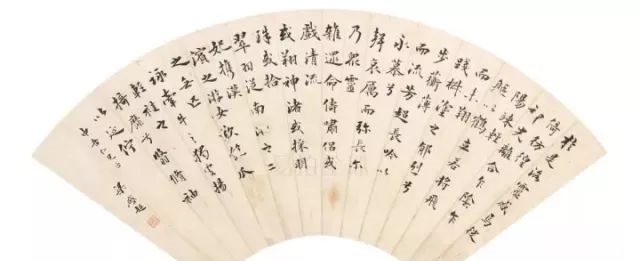 於是洛靈感焉徙
倚彷徨
神光離合乍陰乍
陽竦輕
軀以鶴立若將飛
而未翔
踐椒塗之郁烈兮
步蘅薄
而流芳超長吟以
永慕兮
聲哀厲而彌長尔
乃眾靈
雜遝命儔嘯侶或
戲清流
或翔神渚或採明
珠或拾
翠羽從南湘之二
妃攜漢
濱之游女歎匏瓜
之無匹
詠牽牛之獨處揚
輕袿
之猗靡兮翳脩袖
以延佇
仁兄 梁啟超